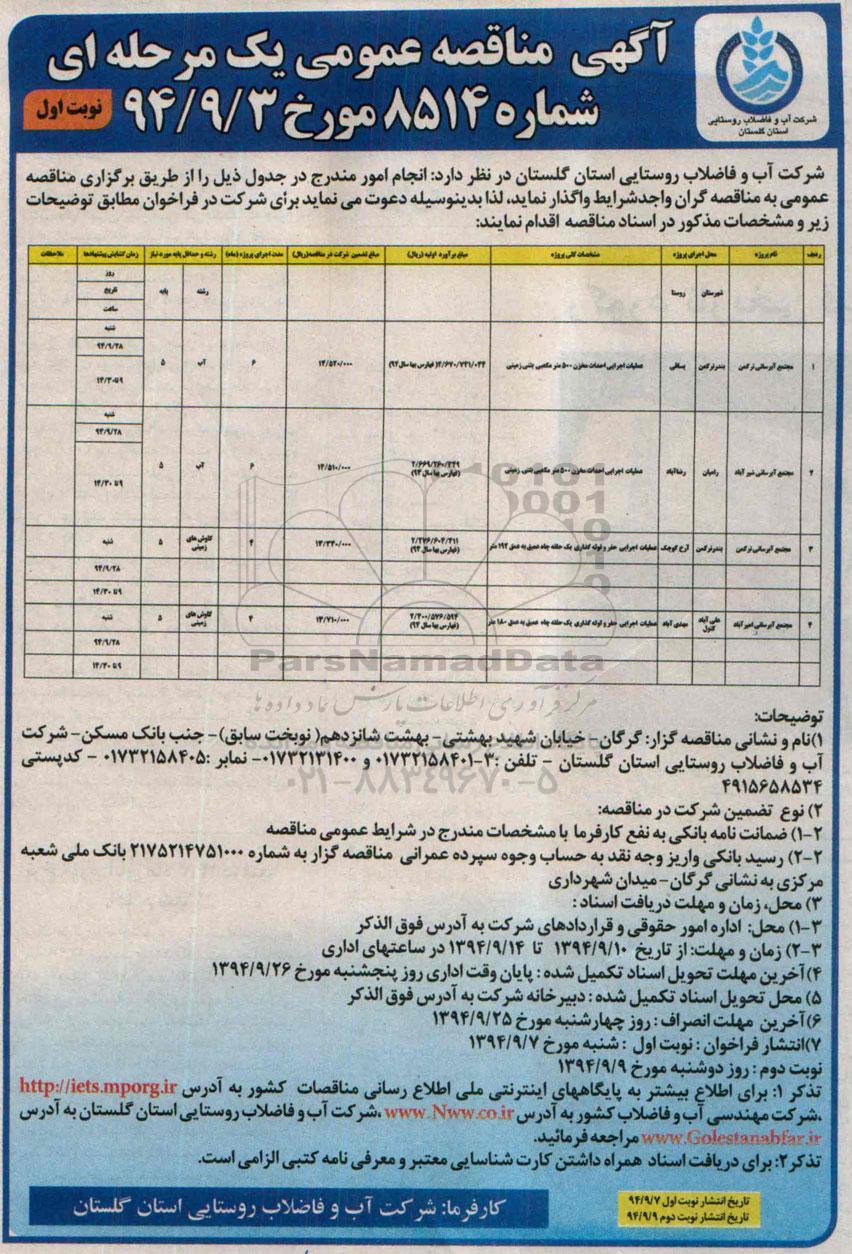 آگهی مناقصه عمومی یک مرحله ای
شماره ۸۵۱۴ مورخ ۹۴/۹/۳
نوبت اول
شرکت آب و فاضلاب روستایی
استان گلستان
شرکت آب و فاضلاب روستایی استان گلستان در نظر دارد: انجام امور مندرج در جدول ذیل را از طریق برگزاری مناقصه
عمومی به مناقصه گران واجدشرایط واگذار نماید، لذا بدینوسیله دعوت می نماید برای شرکت در فراخوان مطابق توضیحات
زیر و مشخصات مذکور در اسناد مناقصه اقدام نمایند:
ردیف نام پروژه محل اجرای پروژه مشخصات کلی پروژه مبلغ برآورد اولیه (ریال) مبلغ تضمین شرکت در مناقصه(ریال) مدت اجرای پروژه (ماه) رشته و حداقل پایه مورد نیاز زمان گشایش پیشنهادها ملاحظات
شهرستان روستا رشته پایه روز
تاریخ
ساعت
۱ مجتمع آبرسانی ترکمن بندرترکمن عملیات اجرایی احداث مخزن ۵۰۰ متر مکعبی بتنی زمینی (فهارس بها سال ۹۴) ۱۴/۵۲۰/۰۰۰ ۶ آب ۵ شنبه
۹۴/۹/۲۸
۹تا۱۴/۳۰
۲ مجتمع آبرسانی شیر آباد رامیان رضاآباد عملیات اجرایی احداث مخزن ۵۰۰ متر مکعبی بتنی زمینی ۲/۶۶۹/۲۶۰/۲۴۹ ۱۴/۵۱۰/۰۰۰ ۶ آب ۵ شنبه
(فهارس بها سال ۹۴)
۹۴/۹/۲۸
۹تا ۱۴/۳۰
۳ مجتمع آبرسانی ترکمن بندرترکمن آرخ کوچک عملیات اجرایی حفر و لوله گذاری یک حلقه چاه عمیق به عمق ۱۹۲ متر ۲/۲۷۶/۶۰۴/۴۱۱ ۱۳/۳۴۰/۰۰۰ ۴ کاوش های زمینی ۵ شنبه
(فهارس بها سال ۹۴)
۹۴/۹/۲۸
۹تا ۱۴/۳۰
۴ مجتمع آبرسانی امیرآباد علی آباد کتول مهدی آباد عملیات اجرایی حفر و لوله گذاری یک حلقه چاه عمیق به عمق ۱۸۰ متر ۲/۴۰۰/۵۷۶/۵۹۴ ۱۳/۷۱۰/۰۰۰ ۴ کاوش های زمینی ۵ شنبه
(فهارس بها سال ۹۴)
۹۴/۹/۲۸
۹تا ۱۴/۳۰
ParsNamadData
مرکز فرآوری اطلاعات پارس نماد داده ها
۰۲۱-۸۸۳۴۹۶۷۰-۵
توضیحات:
۱)نام و نشانی مناقصه گزار: گرگان- خیابان شهید بهشتی- بهشت شانزدهم( نوبخت سابق)- جنب بانک مسکن- شرکت
آب و فاضلاب روستایی استان گلستان - تلفن :۳-۰۱۷۳۲۱۵۸۴۰۱ و ۰۱۷۳۲۱۳۱۴۰۰- نمابر :۰۱۷۳۲۱۵۸۴۰۵ - کدپستی
۴۹۱۵۶۵۸۵۳۴
۲) نوع تضمین شرکت در مناقصه:
۲-۱) ضمانت نامه بانکی به نفع کارفرما با مشخصات مندرج در شرایط عمومی مناقصه
۲-۲) رسید بانکی واریز وجه نقد به حساب وجوه سپرده عمرانی مناقصه گزار به شماره ۲۱۷۵۲۱۴۷۵۱۰۰۰ بانک ملی شعبه
مرکزی به نشانی گرگان-میدان شهرداری
۳) محل، زمان و مهلت دریافت اسناد :
۳-۱) محل: اداره امور حقوقی و قراردادهای شرکت به آدرس فوق الذکر
۳-۲) زمان و مهلت: از تاریخ ۱۳۹۴/۹/۱۰ تا ۱۳۹۴/۹/۱۴ در ساعتهای اداری
۴)آخرین مهلت تحویل اسناد تکمیل شده : پایان وقت اداری روز پنجشنبه مورخ ۱۳۹۴/۹/۲۶
۵) محل تحویل اسناد تکمیل شده : دبیرخانه شرکت به آدرس فوق الذکر
۶)آخرین مهلت انصراف : روز چهارشنبه مورخ ۱۳۹۴/۹/۲۵
۷)انتشار فراخوان : نوبت اول : شنبه مورخ ۱۳۹۴/۹/۷
نوبت دوم : روز دوشنبه مورخ ۱۳۹۴/۹/۹
تذکر ۱: برای اطلاع بیشتر به پایگاههای اینترنتی ملی اطلاع رسانی مناقصات کشور به آدرس http://iets.mporg.ir
،شرکت مهندسی آب و فاضلاب کشور به آدرس www.Nww.co.ir ،شرکت آب و فاضلاب روستایی استان گلستان به آدرس
www.Golestanabfar.ir مراجعه فرمائید.
تذکر۲: برای دریافت اسناد همراه داشتن کارت شناسایی معتبر و معرفی نامه کتبی الزامی است.
تاریخ انتشار نوبت اول ۹۴/۹/۷
تاریخ انتشار نوبت دوم ۹۴/۹/۹
کارفرما: شرکت آب و فاضلاب روستایی استان گلستان